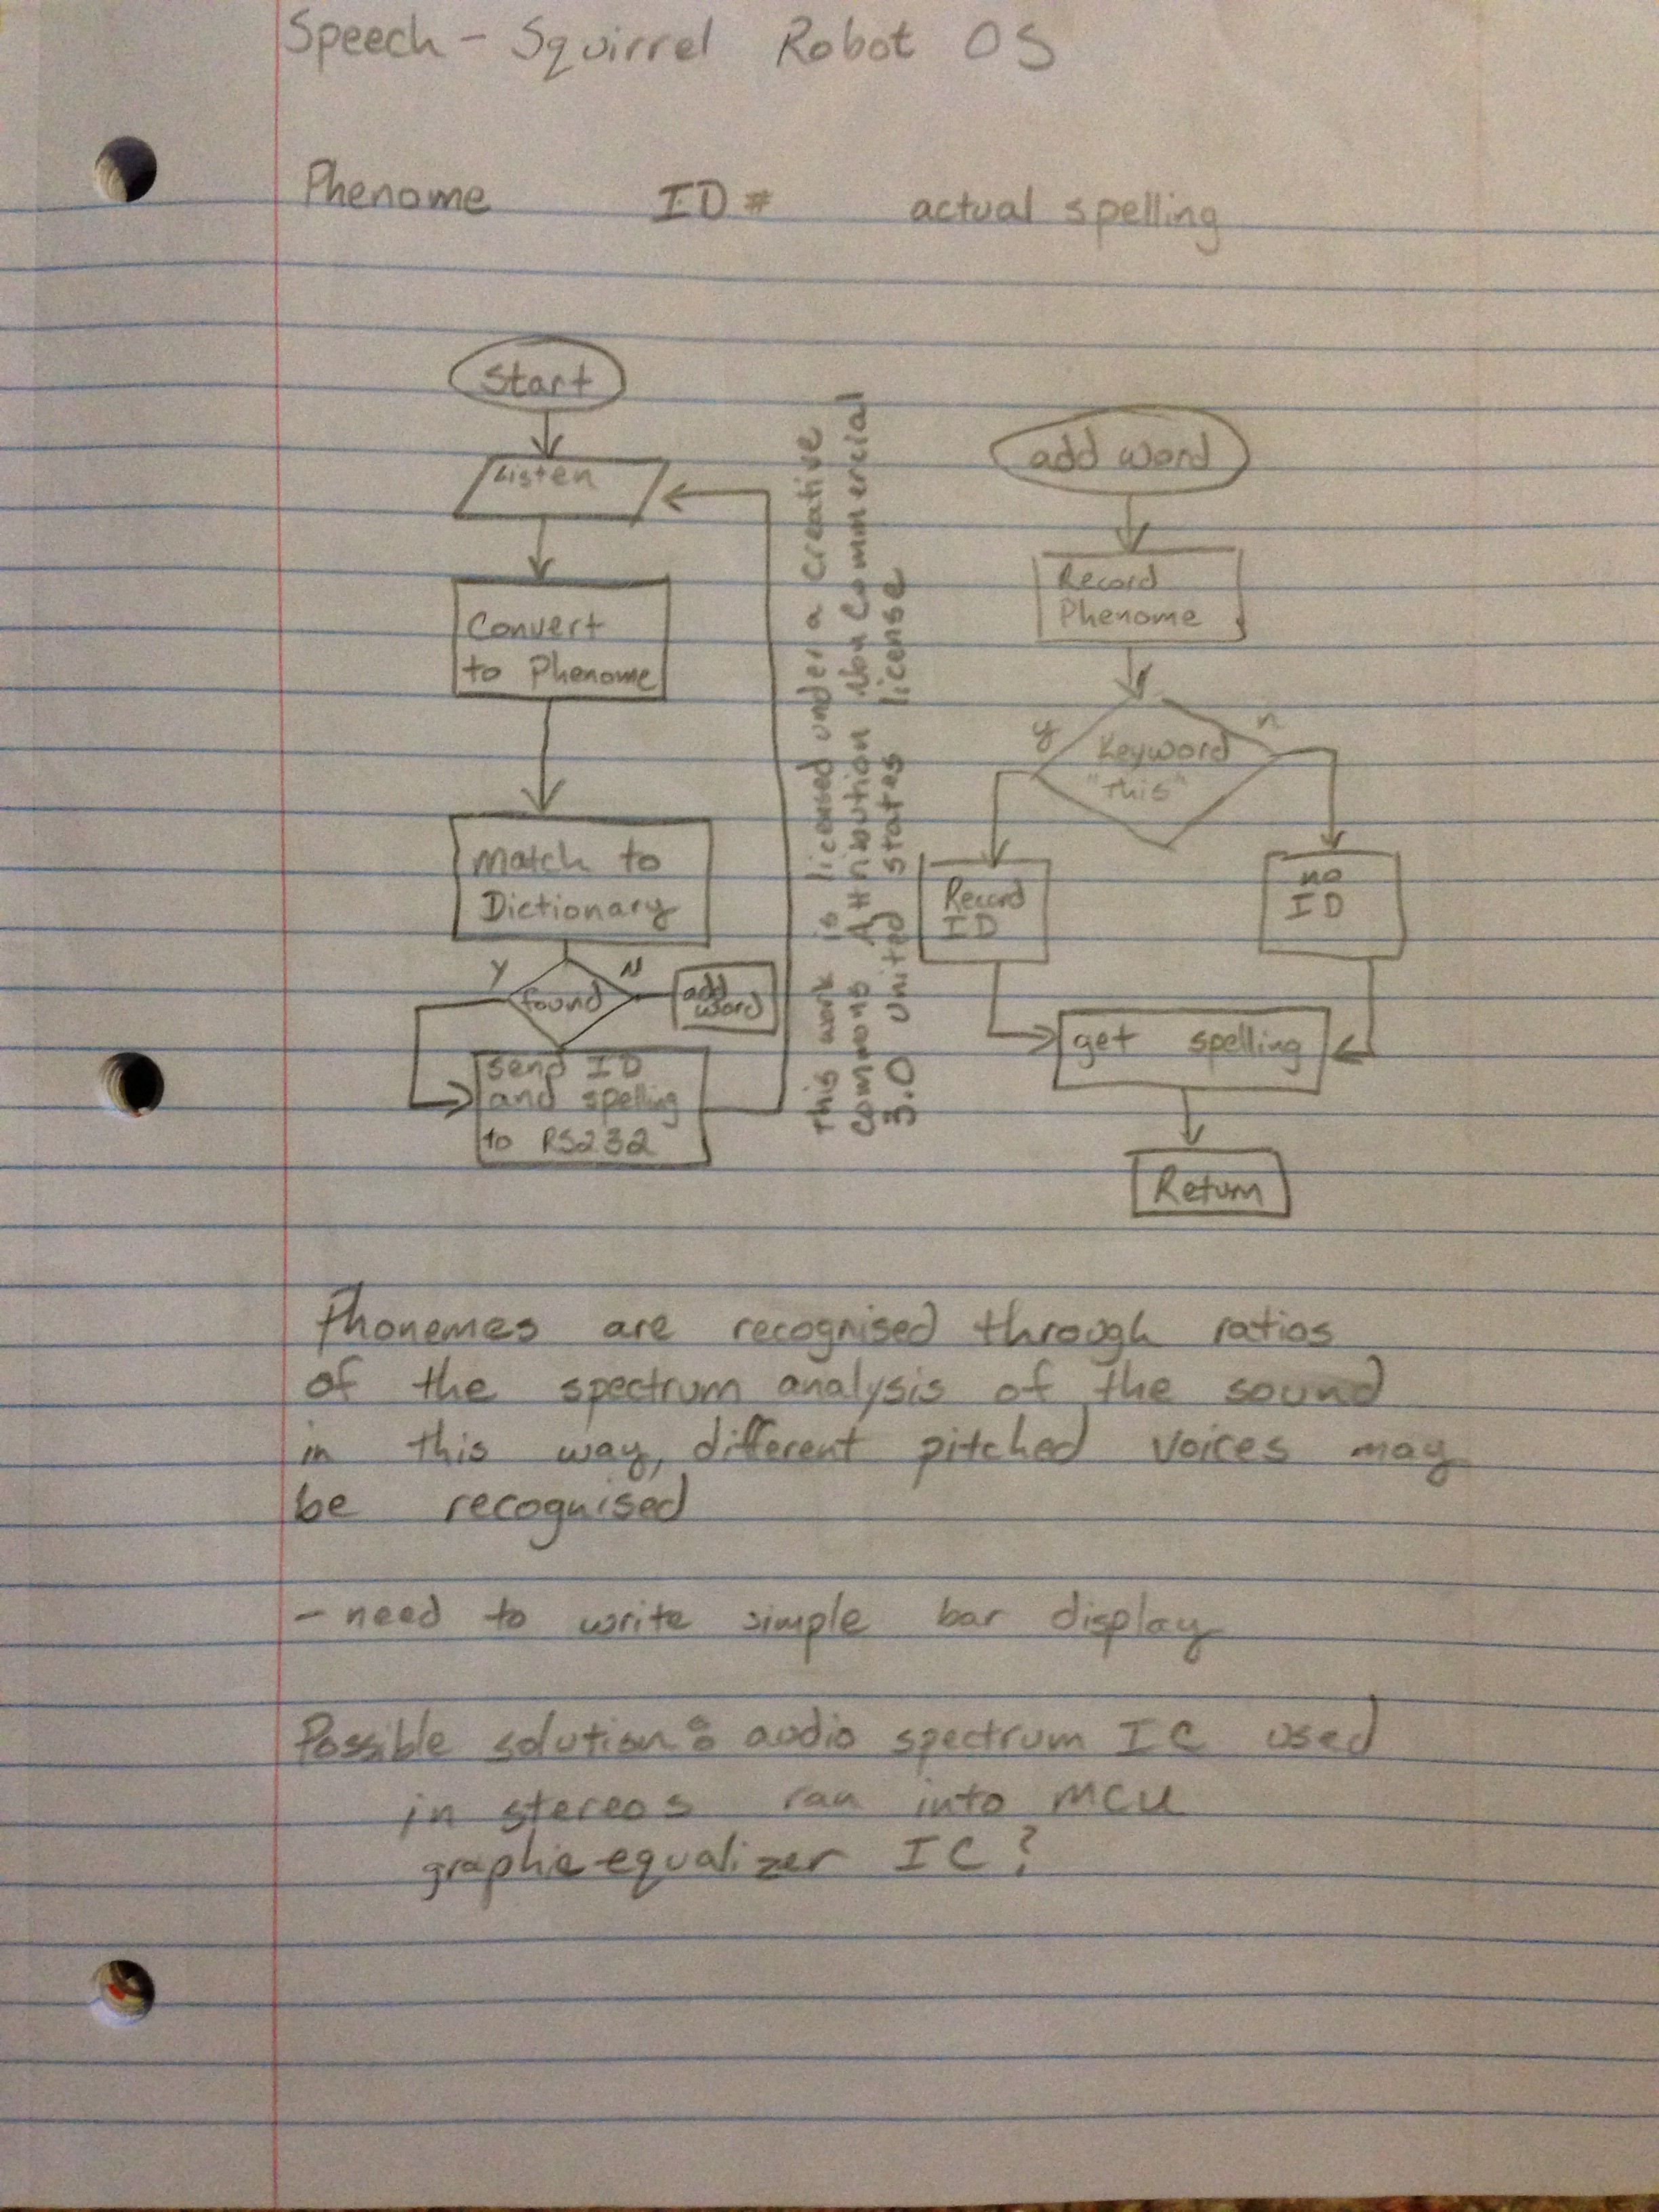 Speech - Squirrel Robot OS
Phenome ID # actual spelling
Start
Listen
Convert
to Phenome
Match to
Dictionary
Y
N
found
add
word
send ID
and spelling
to RS232
This work is licensed under a creative
commons Attribution Non Commercial
3.0 United states license
add word
Record
Phenome
y
n
Keyword
"This"
Record
ID
no
ID
get spelling
Return
Phonemes are recognised through ratios
of the spectrum analysis of the sound
in this way, different pitched voices may
be recognised
- need to write simple bar display
Possible solution: audio spectrum IC used
in stereos ran into MCU
graphic equalizer IC?